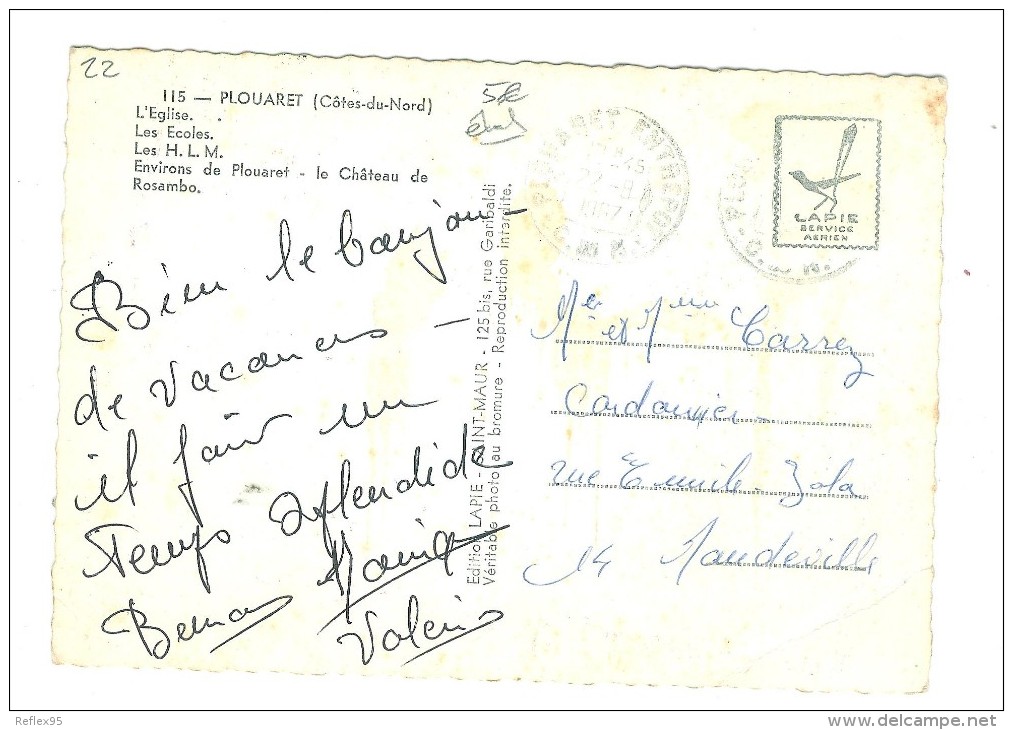 22
115 — PLOUARET (Côtes-du-Nord)
L'Eglise.
Les Ecoles.
Les H. L. M.
Environs de Plouaret - le Château de
Rosambo.
5€
Bien le bonjour
de vacances —
il fait un
temps splendide
Monique
Valérie
Edition LAPIE - SAINT-MAUR - 125 bis, rue Garibaldi
Véritable photo au bromure - Reproduction interdite.
PLOUARET ENTREPOT
LAPIE
SERVICE
AERIEN
Mr et Mme Carrez
Cordonnier
rue Emile Zola
14 Mondeville
Reflex95
delcampe.net